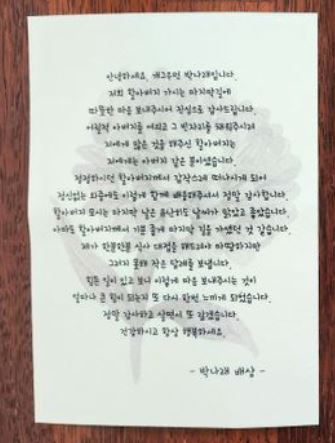 안녕하세요, 개그우먼 박나래입니다.
저희 할아버지 가시는 마지막길에
따뜻한 마음 보내주시어 진심으로 감사드립니다.
어릴적 아버지를 여의고 그 빈자리를 채워주시려
저에게 많은 것을 해주신 할아버지는
저에게는 아버지 같은 분이셨습니다.
정정하시던 할아버지께서 갑작스레 떠나시게 되어
정신없는 와중에도 이렇게 함께 배웅해주셔서 정말 감사합니다.
할아버지 모시는 마지막 날은 유난히도 날씨가 맑았고 좋았습니다.
아마도 할아버지께서 기분 좋게 마지막 길을 가셨던 것 같습니다.
제가 한분한분 식사 대접을 해드려야 마땅하지만
그러지 못해 작은 답례를 보냅니다.
힘든 일이 있고 보니 이렇게 마음 보내주시는 것이
얼마나 큰 힘이 되는지 또 다시 한번 느끼게 되었습니다.
정말 감사하고 살면서 또 갚겠습니다.
건강하시고 항상 행복하세요.
- 박나래 배상 -